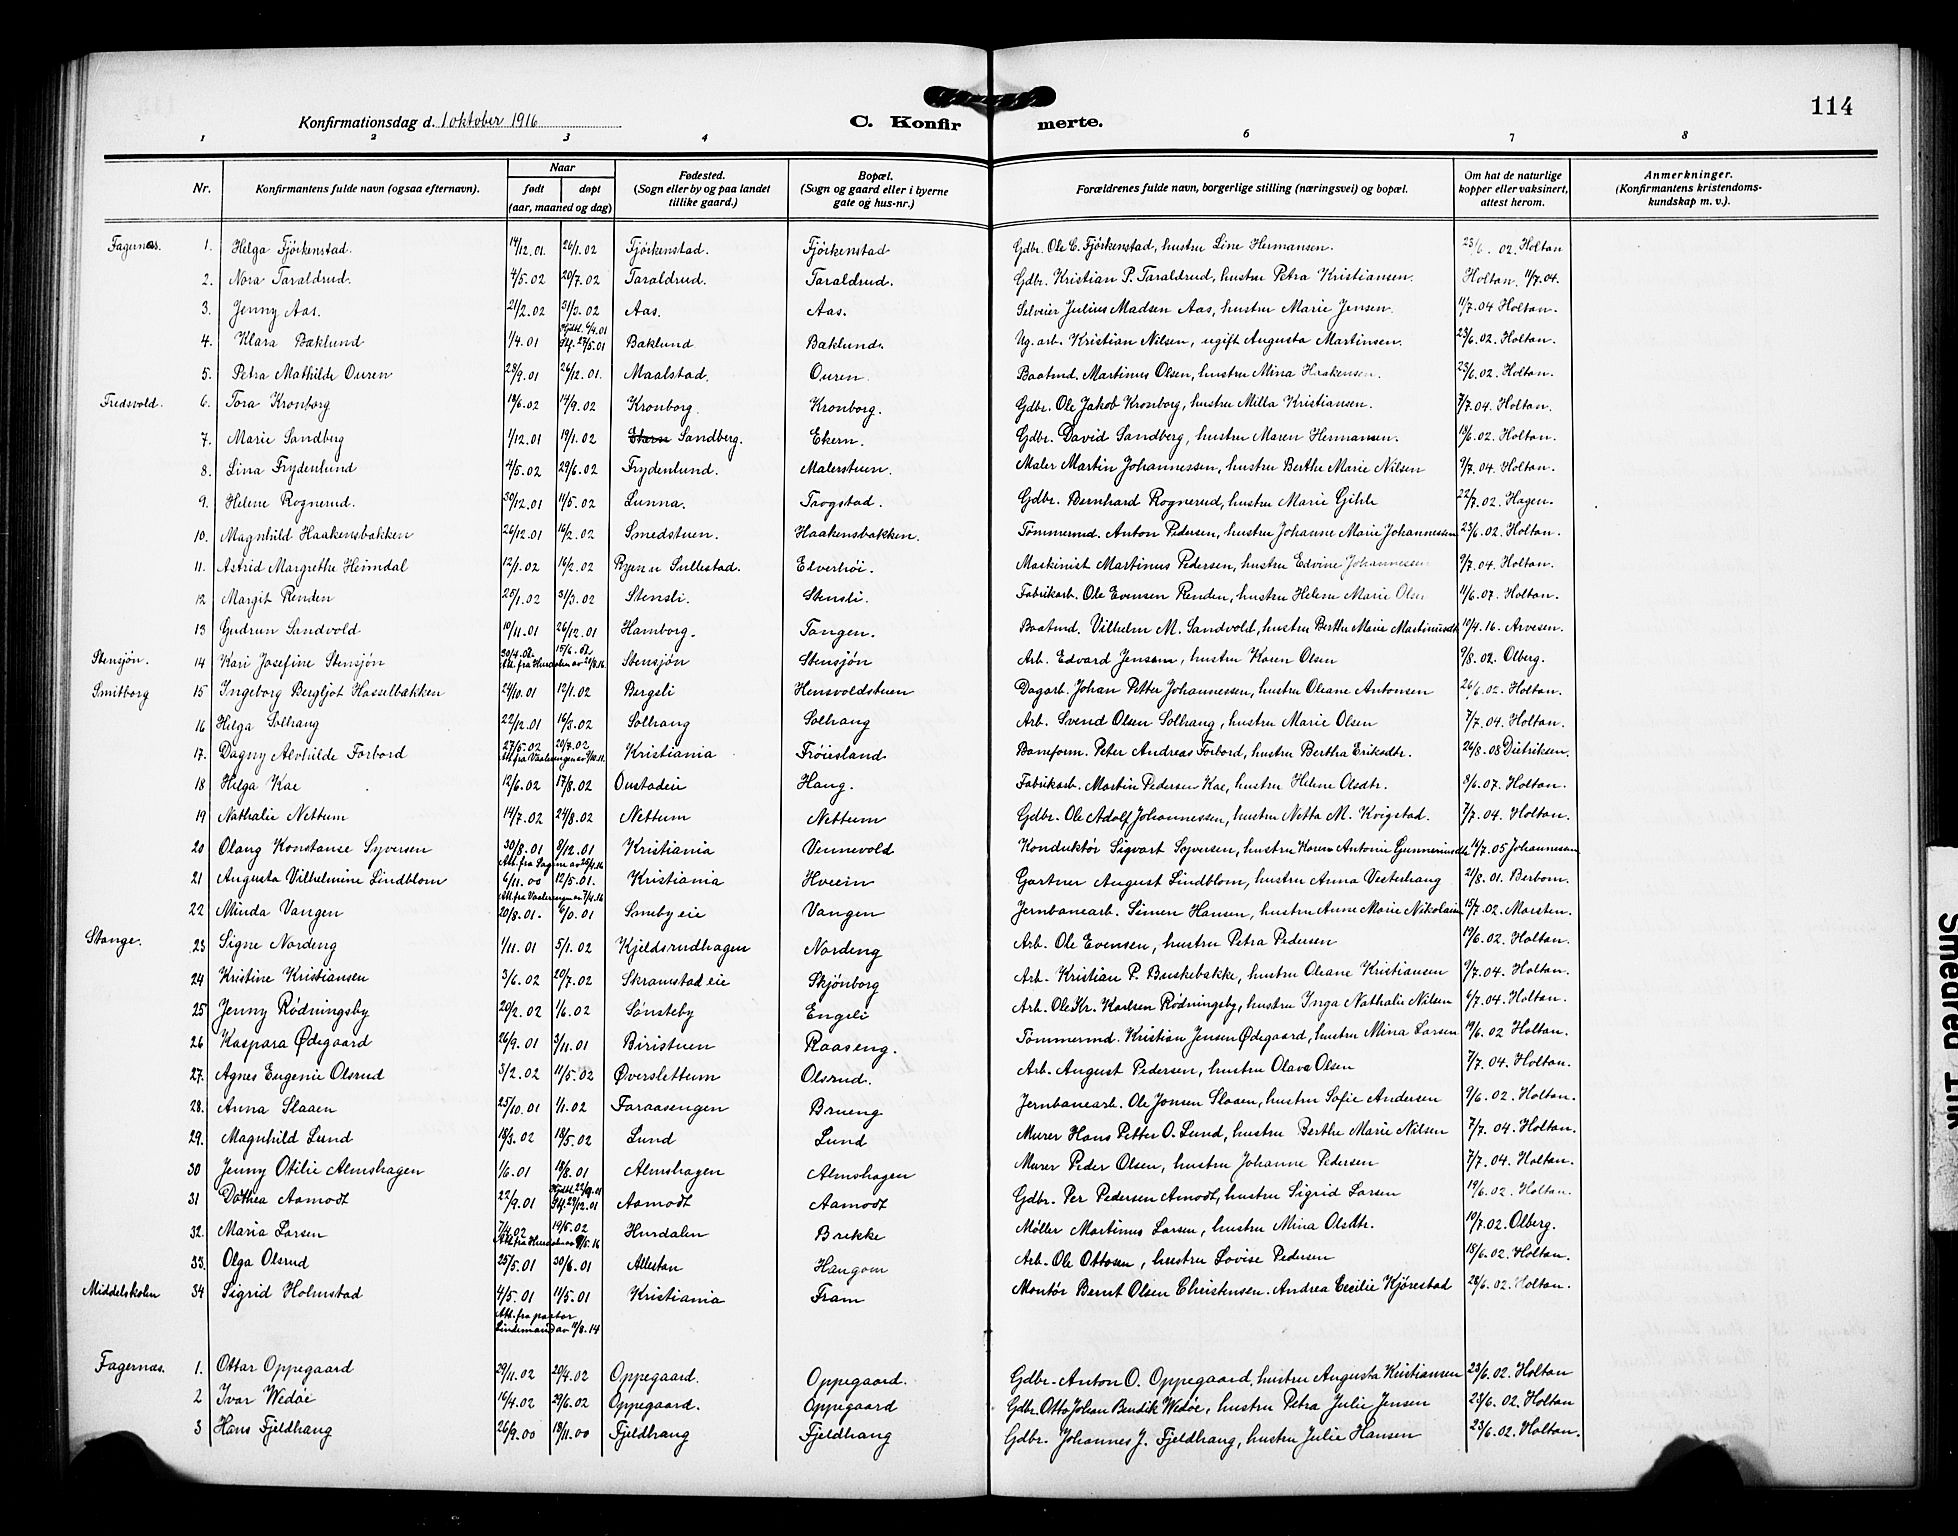 114
Konfirmationsdag d. 1 oktober 1916
C. Konfirmerte.
1 2 3 4 5 6 7 8
Nr. Konfirmantens fulde navn (ogsaa efternavn). Naar født døpt (aar, maaned og dag) Fødested. (Sogn eller by og paa landet tillike gaard.) Bopæl. (Sogn og gaard eller i byerne gate og hus-nr.) Forældrenes fulde navn, borgerlige stilling (næringsvei) og bopæl. Om hat de naturlige kopper eller vaksinert, attest herom. Anmerkninger. (Konfirmantens kristendoms-kundskap m. v.).
Fagernæs. 1. Helga Fjörkenstad. 14/12.01. 26/1.02 Fjörkenstad. Fjörkenstad Gdbr. Ole C. Fjörkenstad, hustru Line Hermansen. 23/6.02. Holtan
2. Nora Taraldrud. 4/5.02 20/7.02 Taraldrud. Taraldrud. Gdbr. Kristian P. Taraldrud, hustru Petra Kristiansen. Holtan. 11/7.04.
3. Jenny Aas. 21/2.02 31/3.02 Aas. Aas. Selveier Julius Madsen Aas, hustru Marie Jensen. 11/7.04 Holtan.
4. Klara Baklund 1/4.01 Hjdbt. 6/4.01 Stf. 27/5.01 Baklund Baklund. Ug. arb. Kristian Nilsen, ugift Augusta Martinsen. 23/6.02. Holtan.
5. Petra Mathilde Ouren 23/9.01 26/12.01. Maalstad. Ouren. Baatmd. Martinus Olsen, hustru Mina Haakensen. 23/6.02. Holtan.
Fredsvold. 6. Tora Kronborg 19/6.02 14/9.02 Kronborg. Kronborg. Gdbr. Ole Jakob Kronborg, hustru Milla Kristiansen. 7/7.04. Holtan.
7. Marie Sandberg 1/12.01 19/1.02 Sandberg. Ekern. Gdbr. David Sandberg, hustru Maren Hermansen. 18/6.02. Holtan.
8. Lina Frydenlund 4/5.02 29/6.02 Frydenlund. Malerstuen. Maler Martin Johannessen, hustru Berthe Marie Nilsen 9/7.04. Holtan.
9. Helene Rognerud. 30/12.01 11/5.02 Lunna. Trogstad. Gdbr. Bernhard Rognerud, hustru Marie Gihle 22/7.02. Hagen.
10. Magnhild Haakensbakken 26/12.01 16/2.02 Smedstuen. Haakensbakken. Tömmermd. Anton Pedersen, hustru Johanne Marie Johannessen 23/6.02. Holtan.
11. Astrid Margrethe Heimdal 12/1.02 16/2.02 Ryen u Sullestad. Elverhöi. Maskinist Martinus Pedersen, hustru Edvine Johannesen 9/7.04. Holtan.
12 Margit Renden 25/1.02 31/3.02 Stensli. Stensli. Fabrikarb. Ole Evensen Renden, hustru Helene Marie Olsen 11/6.07. Holtan.
13 Gudrun Sandvold 10/11.01 26/12.01 Hamborg. Tangen. Baatmd. Vilhelm M. Sandvold, hustru Berthe Marie Martinusdtr 10/4.16. Arvesen.
Stensjön. 14 Kari Josefine Stensjön 30/4.02 15/6.02 Att. fra Hurdalen av 21/8.16 Stensjön Stensjön Arb. Edvard Jensen, hustru Karen Olsen 9/8.02. Olberg.
Smitborg 15 Ingeborg Bergljot Hasselbakken 24/10.01 12/1.02 Bergeli Hensvoldstuen Dagarb. Johan Petter Johannessen, hustru Oleane Antonsen 26/6.02. Holtan.
16 Helga Solhaug 22/12.01 16/3.02 Solhaug Solhaug Arb. Svend Olsen Solhaug, hustru Marie Olsen 7/7.04. Holtan.
17. Dagny Alvhilde Forbord 27/5.02 20/7.02 Att. fra Vaalerengen av 3/10.11. Kristiania Fröisland Baneform. Peter Andreas Forbord, hustru Bertha Eriksdtr. 26/8.08 Dietriksen.
18 Helga Kae 12/6.02 17/8.02 Onstadeie Haug. Fabrikarb. Martin Pedersen Kae, hustru Helene Olsdtr. 8/6.07. Holtan.
19 Nathalie Nettum 14/7.02 24/8.02 Nettum Nettum Gdbr. Ole Adolf Johannessen, hustru Netta M. Kvigstad. 7/7.04. Holtan.
20 Olaug Konstanse Syversen 30/8.01 8/12.01 Att. fra Sagene av 26/9.16 Kristiania Vennevold Konduktör Sigvart Syversen, hustru Karen Antonie Gunneriusdtr 14/7.05 Johannesen
21 Augusta Vilhelmine Lindblom 6/11.00 12/5.01. Att. fra Vaalerengen av 7/4.16 Kristiania Hveein Gartner August Lindblom, hustru Anna Vesterhaug 21/8.01. Berbom.
22 Minda Vangen 20/8.01. 6/0.01 Smeby eie Vangen Jernbanearb. Simen Hansen, hustru Anne Marie Nikolaisen 15/7.02. Morsten.
Stange. 23 Signe Nordeng 1/11.01 5/1.02 Kjeldsrudhagen Nordeng Arb. Ole Evensen, hustru Petra Pedersen 19/6.02. Holtan.
24 Kristine Kristiansen 3/6.02 20/7.02 Skramstad eie Skjönborg Arb. Kristian P. Buskebakke, hustru Oleane Kristiansen 9/7.04. Holtan.
25 Jenny Rödningsby 20/2.02 1/6.02 Sönsteby Engeli Arb. Ole Kr. Karlsen Rödningsby, hustru Inga Nathalie Nilsen 6/7.04. Holtan.
26 Kaspara Ødegaard 26/9.01 3/11.01 Biristuen Raaseng. Tömmermd. Kristian Jensen Ødegaard, hustru Mina Larsen 19/6.02 Holtan.
27. Agnes Eugenie Olsrud 3/2.02 11/5.02 Øverslettum Olsrud. Arb. August Pedersen, hustru Olava Olsen 7/7.04. Holtan.
28. Anna Slaaen 25/10.01 1/1.02 Faraasengen Brueng Jernbanearb. Ole Jonsen Slaaen, hustru Sofie Andersen 9/6.02. Holtan.
29. Magnhild Lund 18/3.02 18/5.02 Lund Lund Murer Hans Petter O. Lund, hustru Berthe Marie Nilsen 7/7.04. Holtan.
30 Jenny Otilie Almshagen 1/6.01 18/8.01 Almshagen Almshagen Murer Peder Olsen, hustru Johanne Pedersen 7/7.04. Holtan.
31 Dorthea Aamodt 22/9.01 Hjdbt. 22/9.01 Stf. 29/12.01 Aamodt Aamodt Gdbr. Per Pedersen Amodt, hustru Sigrid Larsen 19/6.02. Holtan.
32. Maria Larsen 7/4.02 19/5.02 Att. fra Hurdalen av 9/5.16 Hurdalen Brekke Møller Martinus Larsen, hustru Mina Olsdtr. 10/7.02. Olberg.
33. Olga Olsrud 25/5.01 30/6.01 Allestan Haugom Arb. Ole Ottosen, hustru Lovise Pedersen 18/6.02. Holtan.
Middelskolen 34 Sigrid Holmstad 4/5.01 11/5.01 Att. fra pastor Lindemand av 11/8.14 Kristiania Fram Montör Bernt Olsen Christensen. Andrea Cecilie Kjörestad 28/6.02. Holtan.
Fagernæs. 1. Ottar Oppegaard 29/11.02 20/4.02 Oppegaard. Oppegaard. Gdbr. Anton O. Oppegaard, hustru Augusta Kristiansen 23/6.02. Holtan
2 Ivar Wedöe 16/4.02 29/6.02 Oppegaard. Oppegaard Gdbr. Otto Johan Bendik Wedöe, hustru Petra Julie Jensen 23/6.02. Holtan
3 Hans Fjeldhaug 26/9.00 18/11.00 Fjeldhaug Fjeldhaug Gdbr. Johannes J. Fjeldhaug, hustru Julie Hansen 23/6.02. Holtan.
Smedrød Trk